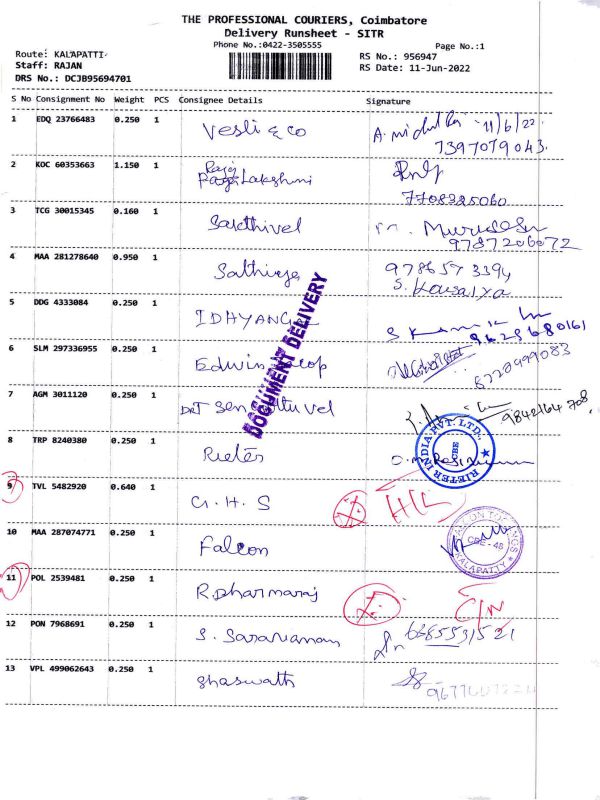 THE PROFESSIONAL COURIERS, Coimbatore
Delivery Runsheet - SITR
Phone No.:0422-3505555
Page No.:1
Route: KALAPATTI
Staff: RAJAN
DRS No.: DCJB95694701
RS No.: 956947
RS Date: 11-Jun-2022
S No Consignment No Weight PCS Consignee Details Signature
1 EDQ 23766483 0.250 1 Vesli & co 11/6/22
7397079043
2 KOC 60353663 1.150 1 Lakshmi
7708325060
3 TCG 30015345 0.160 1 Sakthivel
9787206072
4 MAA 281278640 0.950 1 Sathiya 978657 3394
S. Kausalya
5 DDG 4333084 0.250 1
9629680161
6 SLM 297336955 0.250 1 Edwin
8220499083
7 AGM 3011120 0.250 1
9842164 708
DOCUMENT DELIVERY
8 TRP 8240380 0.250 1 Rieter
RIETER INDIA PVT. LTD.
CBE
9 TVL 5482920 0.640 1 G. H. S
10 MAA 287074771 0.250 1 Falcon
CBE - 48
KALAPATTY
11 POL 2539481 0.250 1 R. Dharmaraj
12 PON 7968691 0.250 1 S. Saravanan
6385531521
13 VPL 499062643 0.250 1 Shaswath